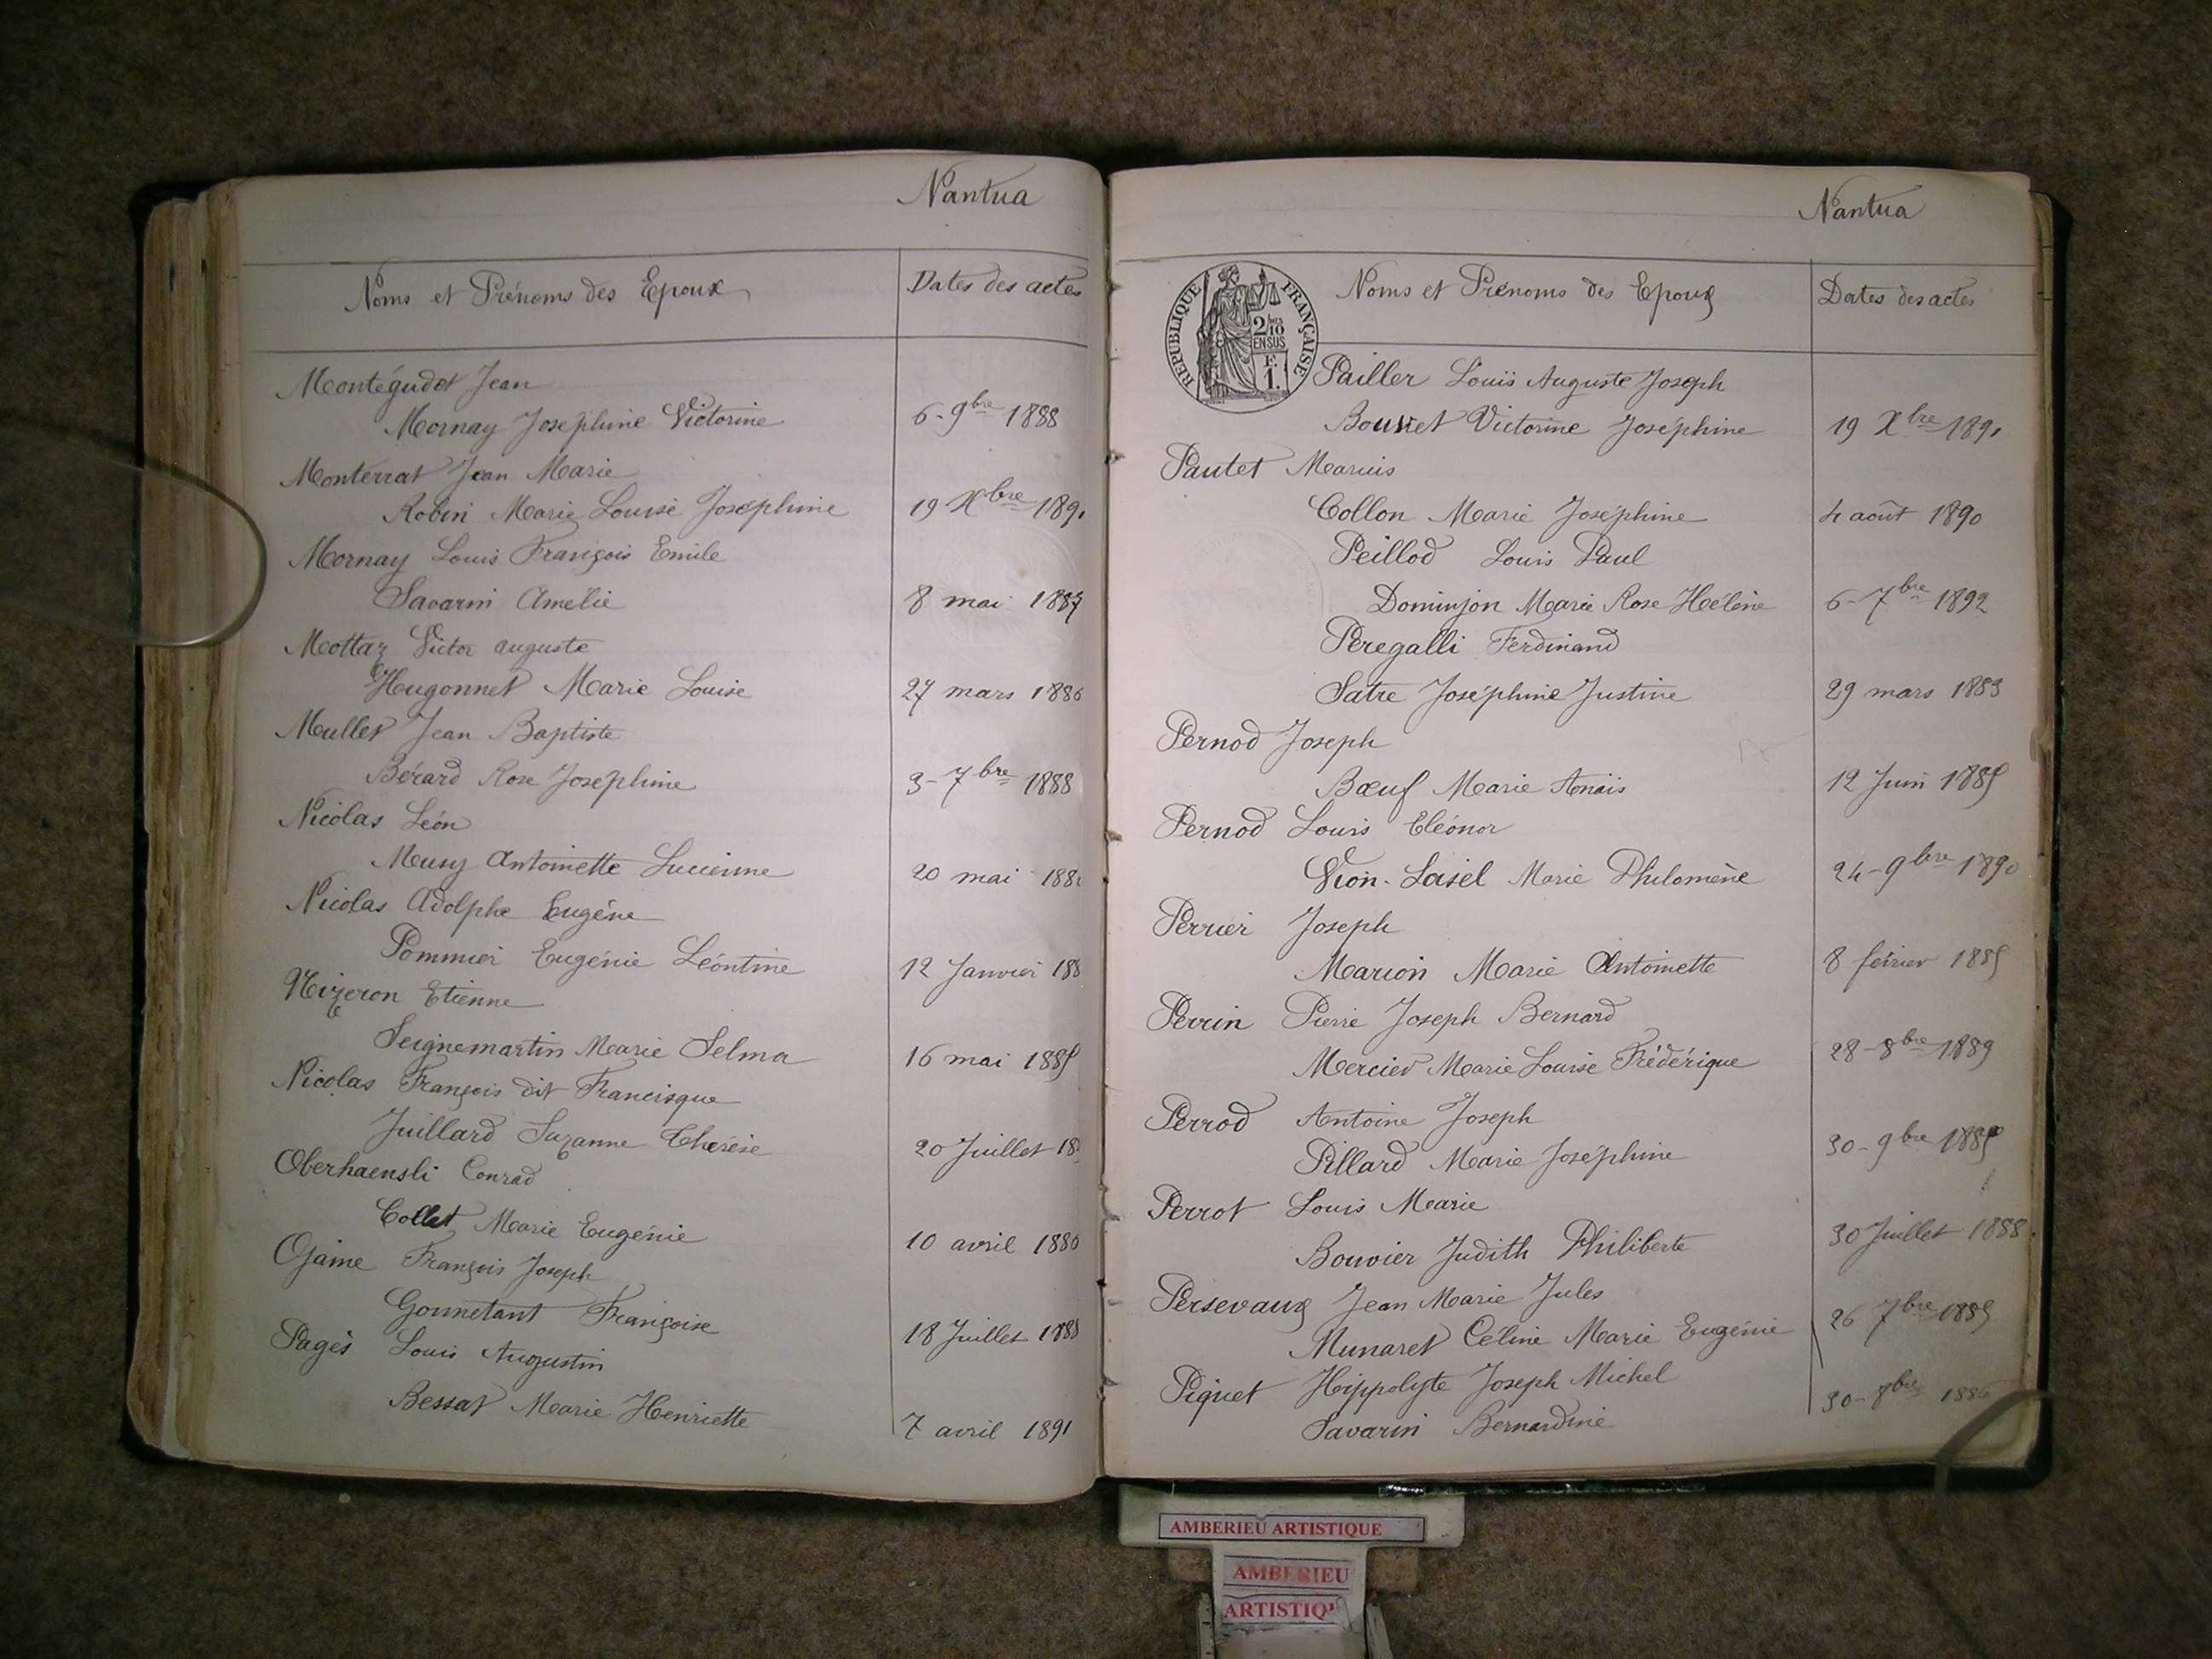 Nantua
Noms et Prénoms des Epoux
Dates des actes
Montégudet Jean
Mornay Joséphine Victorine 6-9bre 1888
Monterrat Jean Marie
Robin Marie Louise Joséphine 19 Xbre 1891
Mornay Louis François Emile
Savarin Amelie 8 mai 1887
Mottaz Victor auguste
Hugonnet Marie Louise 27 mars 1886
Mullet Jean Baptiste
Bérard Rose Joséphine 3-7bre 1888
Nicolas Léon
Musy Antoinette Lucienne 20 mai
Nicolas Adolphe Eugène
Pommier Eugénie Léontine 12 Janvier 188
Nizeron Etienne
Seignemartin Marie Selma 16 mai 1885
Nicolas François dit Francisque
Juillard Suzanne Thérèse 20 Juillet 18
Oberhaensli Conrad
Collet Marie Eugénie 10 avril 1886
Ojaine François Joseph
Gonnetant Françoise 18 Juillet 1885
Pagès Louis Augustin
Bessat Marie Henriette 7 avril 1891
Nantua
REPUBLIQUE FRANÇAISE
2/10 EN SUS
F. 1.
Noms et Prénoms des Epoux
Dates des actes
Pailler Louis Auguste Joseph
Bouvet Victorine Joséphine 19 Xbre 1891
Pautet Marius
Collon Marie Joséphine 4 août 1890
Peillod Louis Paul
Dominjon Marie Rose Hélène 6-7bre 1892
Peregalli Ferdinand
Satre Joséphine Justine 29 mars 1883
Pernod Joseph
Bœuf Marie Anaïs 12 Juin 1885
Pernod Louis Eléonor
Vion-Loisel Marie Philomène 24-9bre 1890
Perrier Joseph
Marion Marie Antoinette 8 février 1885
Perrin Pierre Joseph Bernard
Mercier Marie Louise Frédérique 28-8bre 1889
Perrod Antoine Joseph
Pillard Marie Joséphine 30-9bre 1885
Perrot Louis Marie
Bouvier Judith Philiberte 30 Juillet 1888
Persevaux Jean Marie Jules
Munaret Céline Marie Eugénie 26 7bre 1885
Piquet Hippolyte Joseph Michel
Savarin Bernardine 30-8bre 1886
AMBERIEU ARTISTIQUE
AMBERIEU
ARTISTIQU